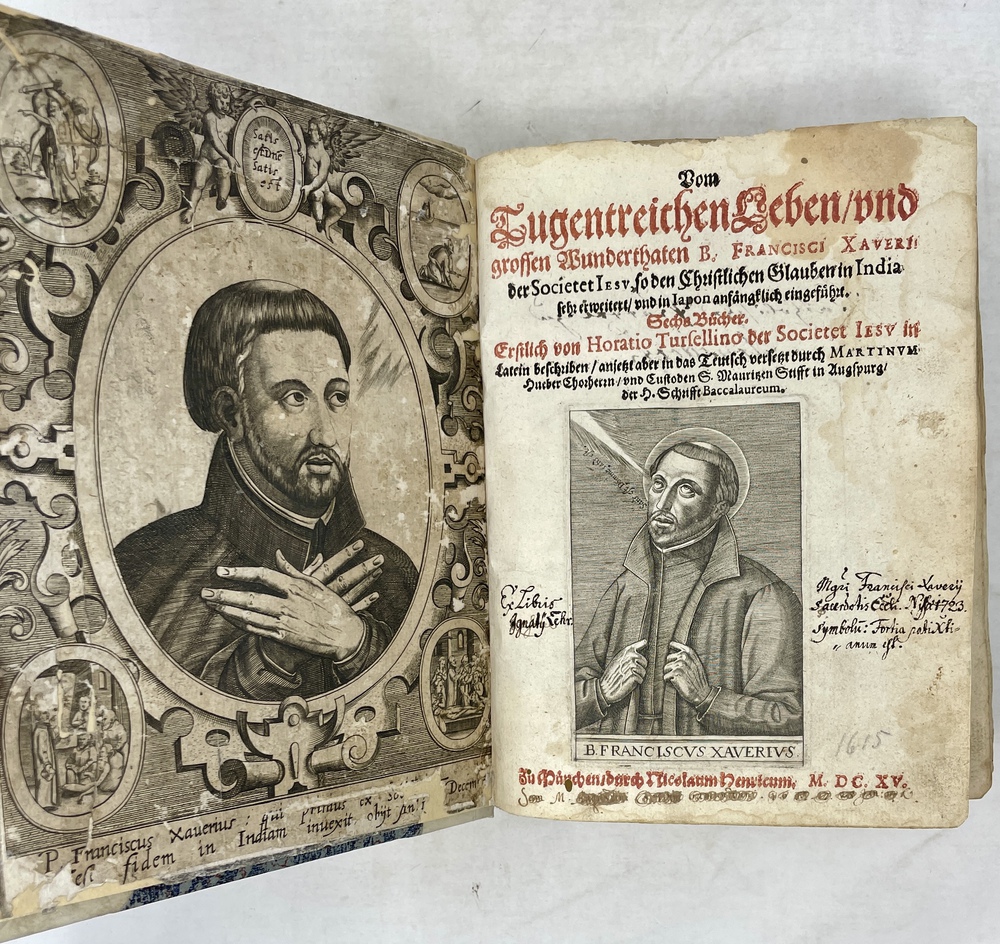 Satis
est Dñe
Satis
est
P Franciscus Xauerius : qui primus ex Soc
Iesu fidem in Indiam inuexit obijt An
Decem
Vom
Tugentreichen Leben/vnd
grossen Wunderthaten B. FRANCISCI XAVERII
der Societet IESV, so den Christlichen Glauben in India
sehr erweitert/ vnd in Iapon anfängklich eingeführt.
Sechs Bücher.
Erstlich von Horatio Tursellino der Societet IESV in
Latein beschriben / anjetzt aber in das Teutsch versetzt durch MARTINVM
Hueber Chorherrn/ vnd Custoden S. Mauritzen Stifft in Augspurg/
der H. Schrifft Baccalaureum.
Ex Libris
Ignatij
Francisci Xaverij
Sacerdotis 1723.
Symbolũ: Fortia pati Xti-
anum est.
B. FRANCISCVS XAVERIVS.
1615
Zu München/durch Nicolaum Henricum. M. DC. XV.